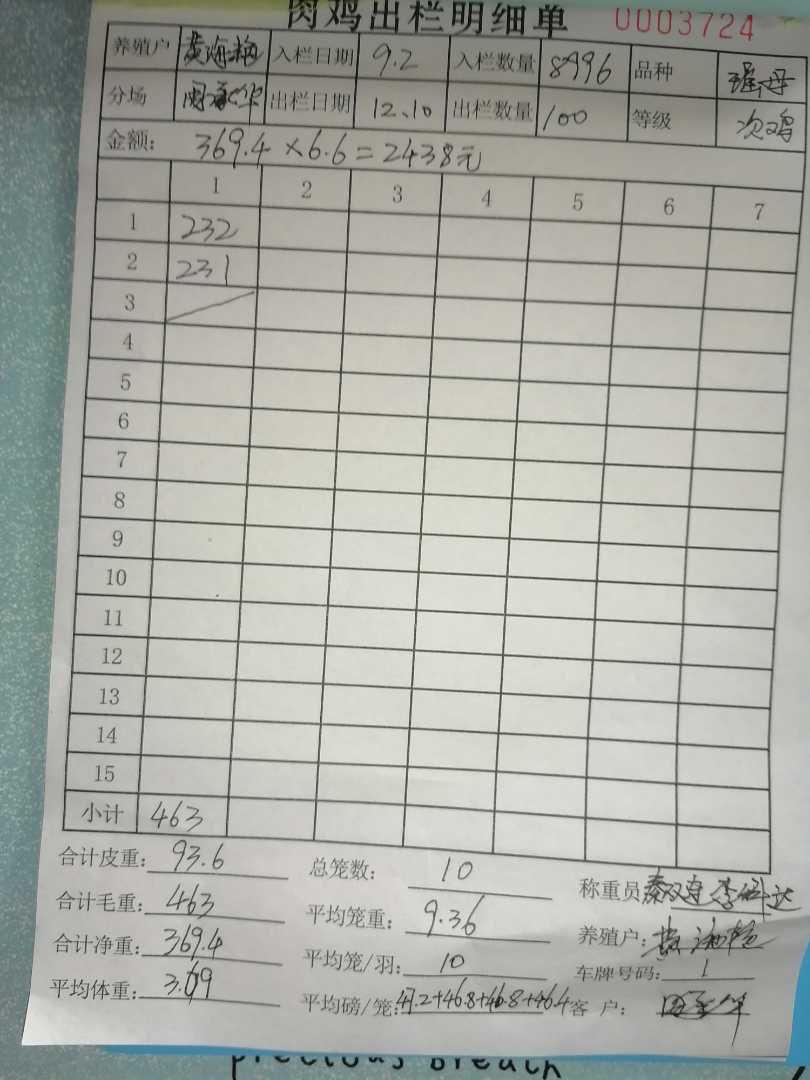 肉鸡出栏明细单 0003724
养殖户 入栏日期 9.2 入栏数量 8996 品种
分场 出栏日期 12.10 出栏数量 100 等级 次鸡
金额: 369.4×6.6=2438元
1 2 3 4 5 6 7
1 232
2 231
3
4
5
6
7
8
9
10
11
12
13
14
15
小计 463
合计皮重: 93.6 总笼数: 10 称重员
合计毛重: 463 平均笼重: 9.36 养殖户:
合计净重: 369.4 平均笼/羽: 10 车牌号码: 1
平均体重: 平均磅/笼: 47.2+46.8+46.8+46.4 客户:
precious Breath